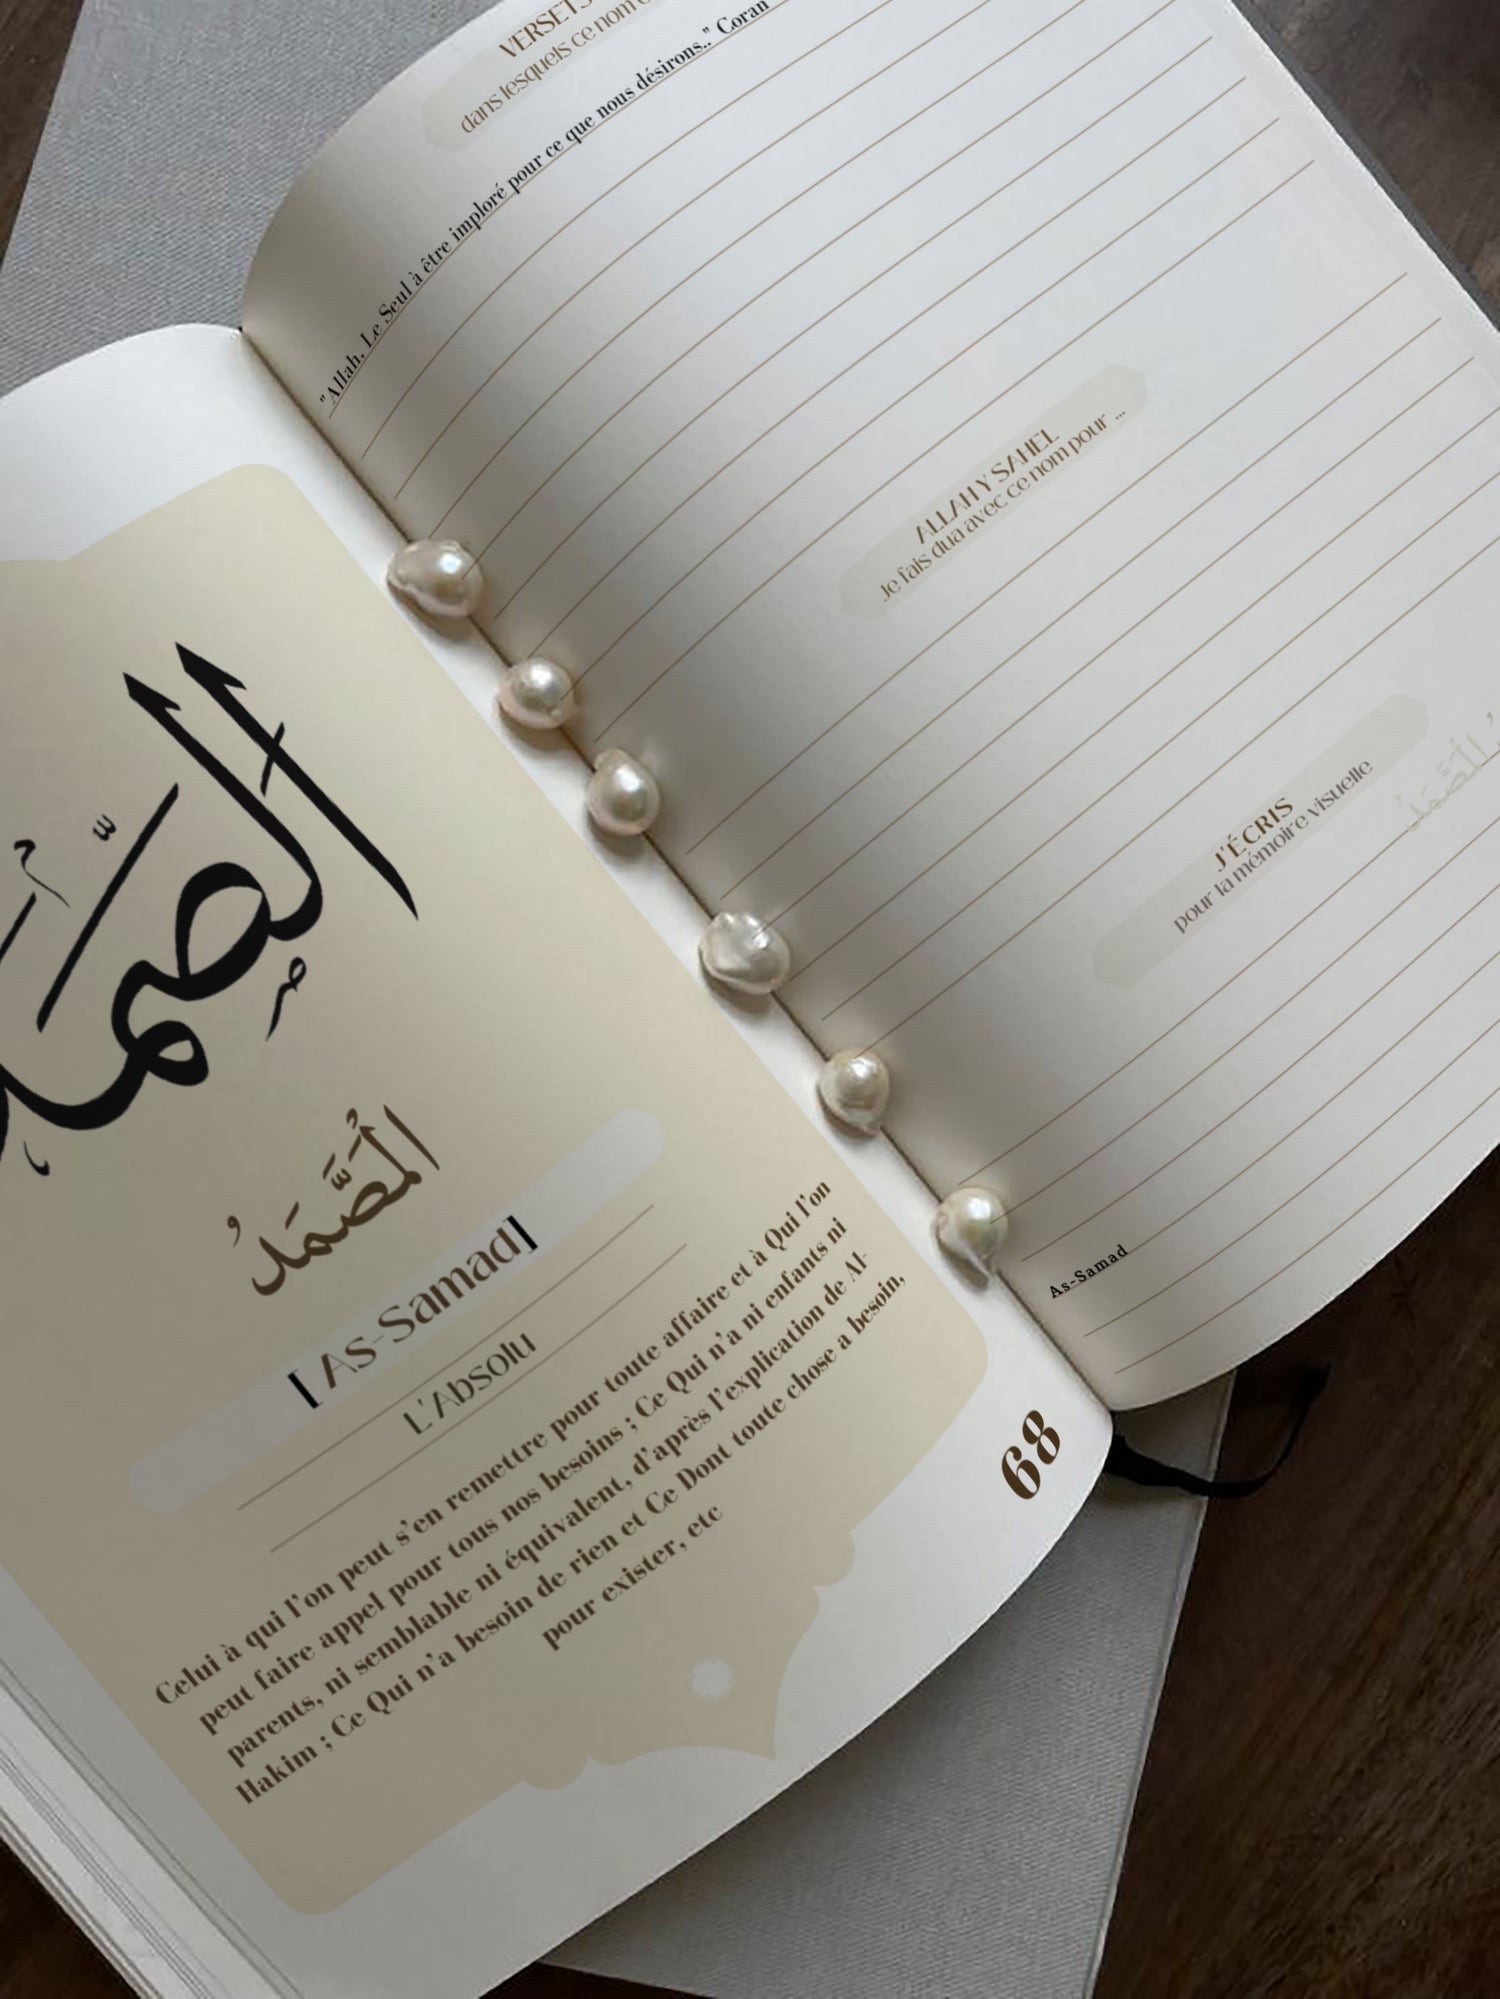 الصَّمَدُ
الصَّمَدُ
[As-Samad]
L'Absolu
Celui à qui l'on peut s'en remettre pour toute affaire et à Qui l'on
peut faire appel pour tous nos besoins ; Ce Qui n'a ni enfants ni
parents, ni semblable ni équivalent, d'après l'explication de Al-
Hakim ; Ce Qui n'a besoin de rien et Ce Dont toute chose a besoin,
pour exister, etc
68
VERSETS
dans lesquels ce nom
"Allah, Le Seul à être imploré pour ce que nous désirons.." Coran
ALLAH Y SAHEL
Je fais dua avec ce nom pour ...
J'ÉCRIS
pour la mémoire visuelle
الصَّمَدُ
As-Samad